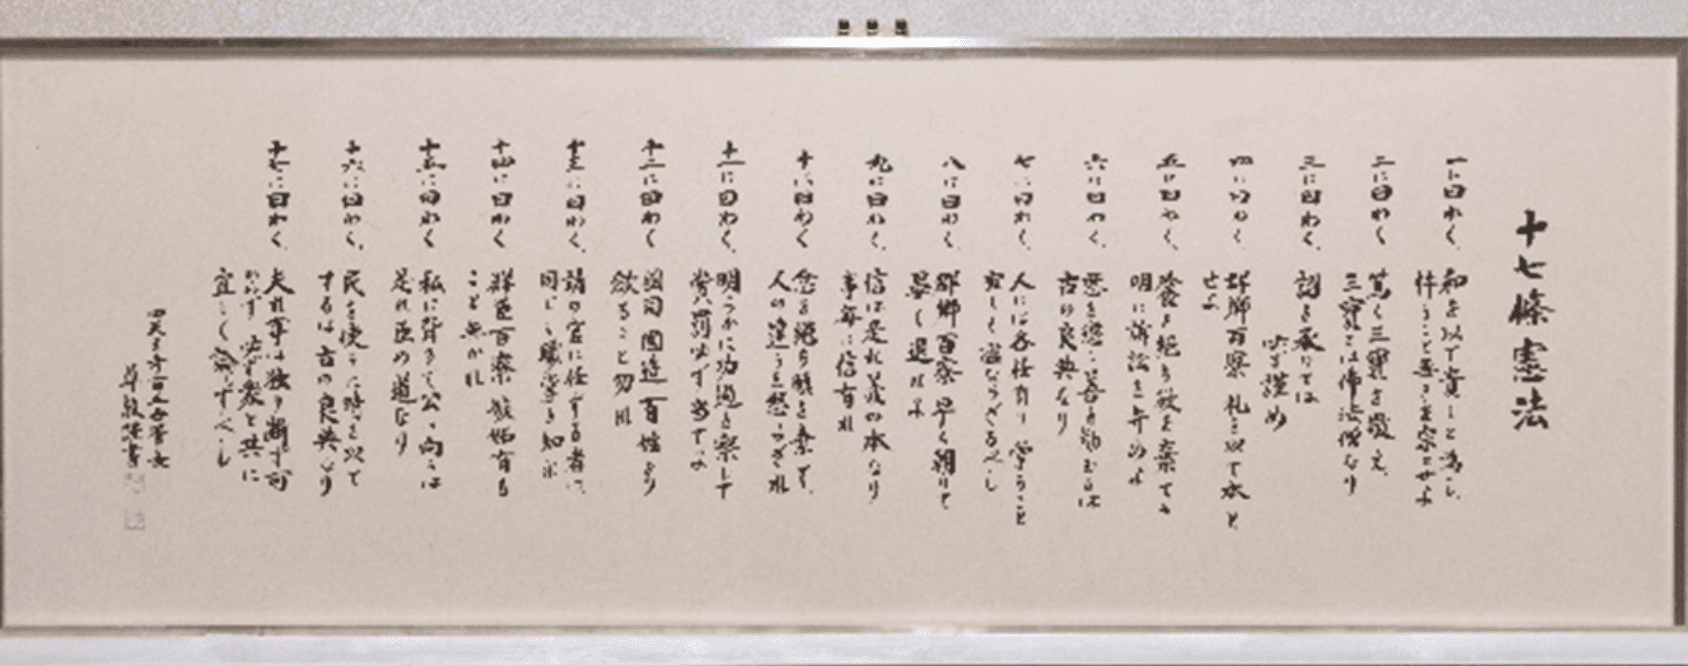 十七條憲法
一に曰わく 和を以て貴しと為し
忤うこと無きを宗とせよ
二に曰わく 篤く三寶を敬え
三寶とは佛法僧なり
三に曰わく 詔を承りては
必ず謹め
四に曰わく 群卿百寮 礼を以て本と
せよ
五に曰わく 餐を絶ち欲を棄てて
明に訴訟を弁めよ
六に曰わく 悪を懲し善を勧むるは
古の良典なり
七に曰わく 人には各任有り 掌ること
宜しく濫ならざるべし
八に曰わく 群卿百寮 早く朝りて
晏く退けよ
九に曰わく 信は是れ義の本なり
事毎に信有れ
十に曰わく 忿を絶ち瞋を棄て
人の違うを怒らざれ
十一に曰わく 明らかに功過を察して
賞罰必ず当てよ
十二に曰わく 国司 国造 百姓より
斂ること勿れ
十三に曰わく 諸の官に任ずる者は
同じく職掌を知れ
十四に曰わく 群臣百寮 嫉妬有る
こと無かれ
十五に曰わく 私に背きて公に向うは
是れ臣の道なり
十六に曰わく 民を使うに時を以て
するは古の良典なり
十七に曰わく 夫れ事は独り断ず可
からず 必ず衆と共に
宜しく論ずべし
四天王寺